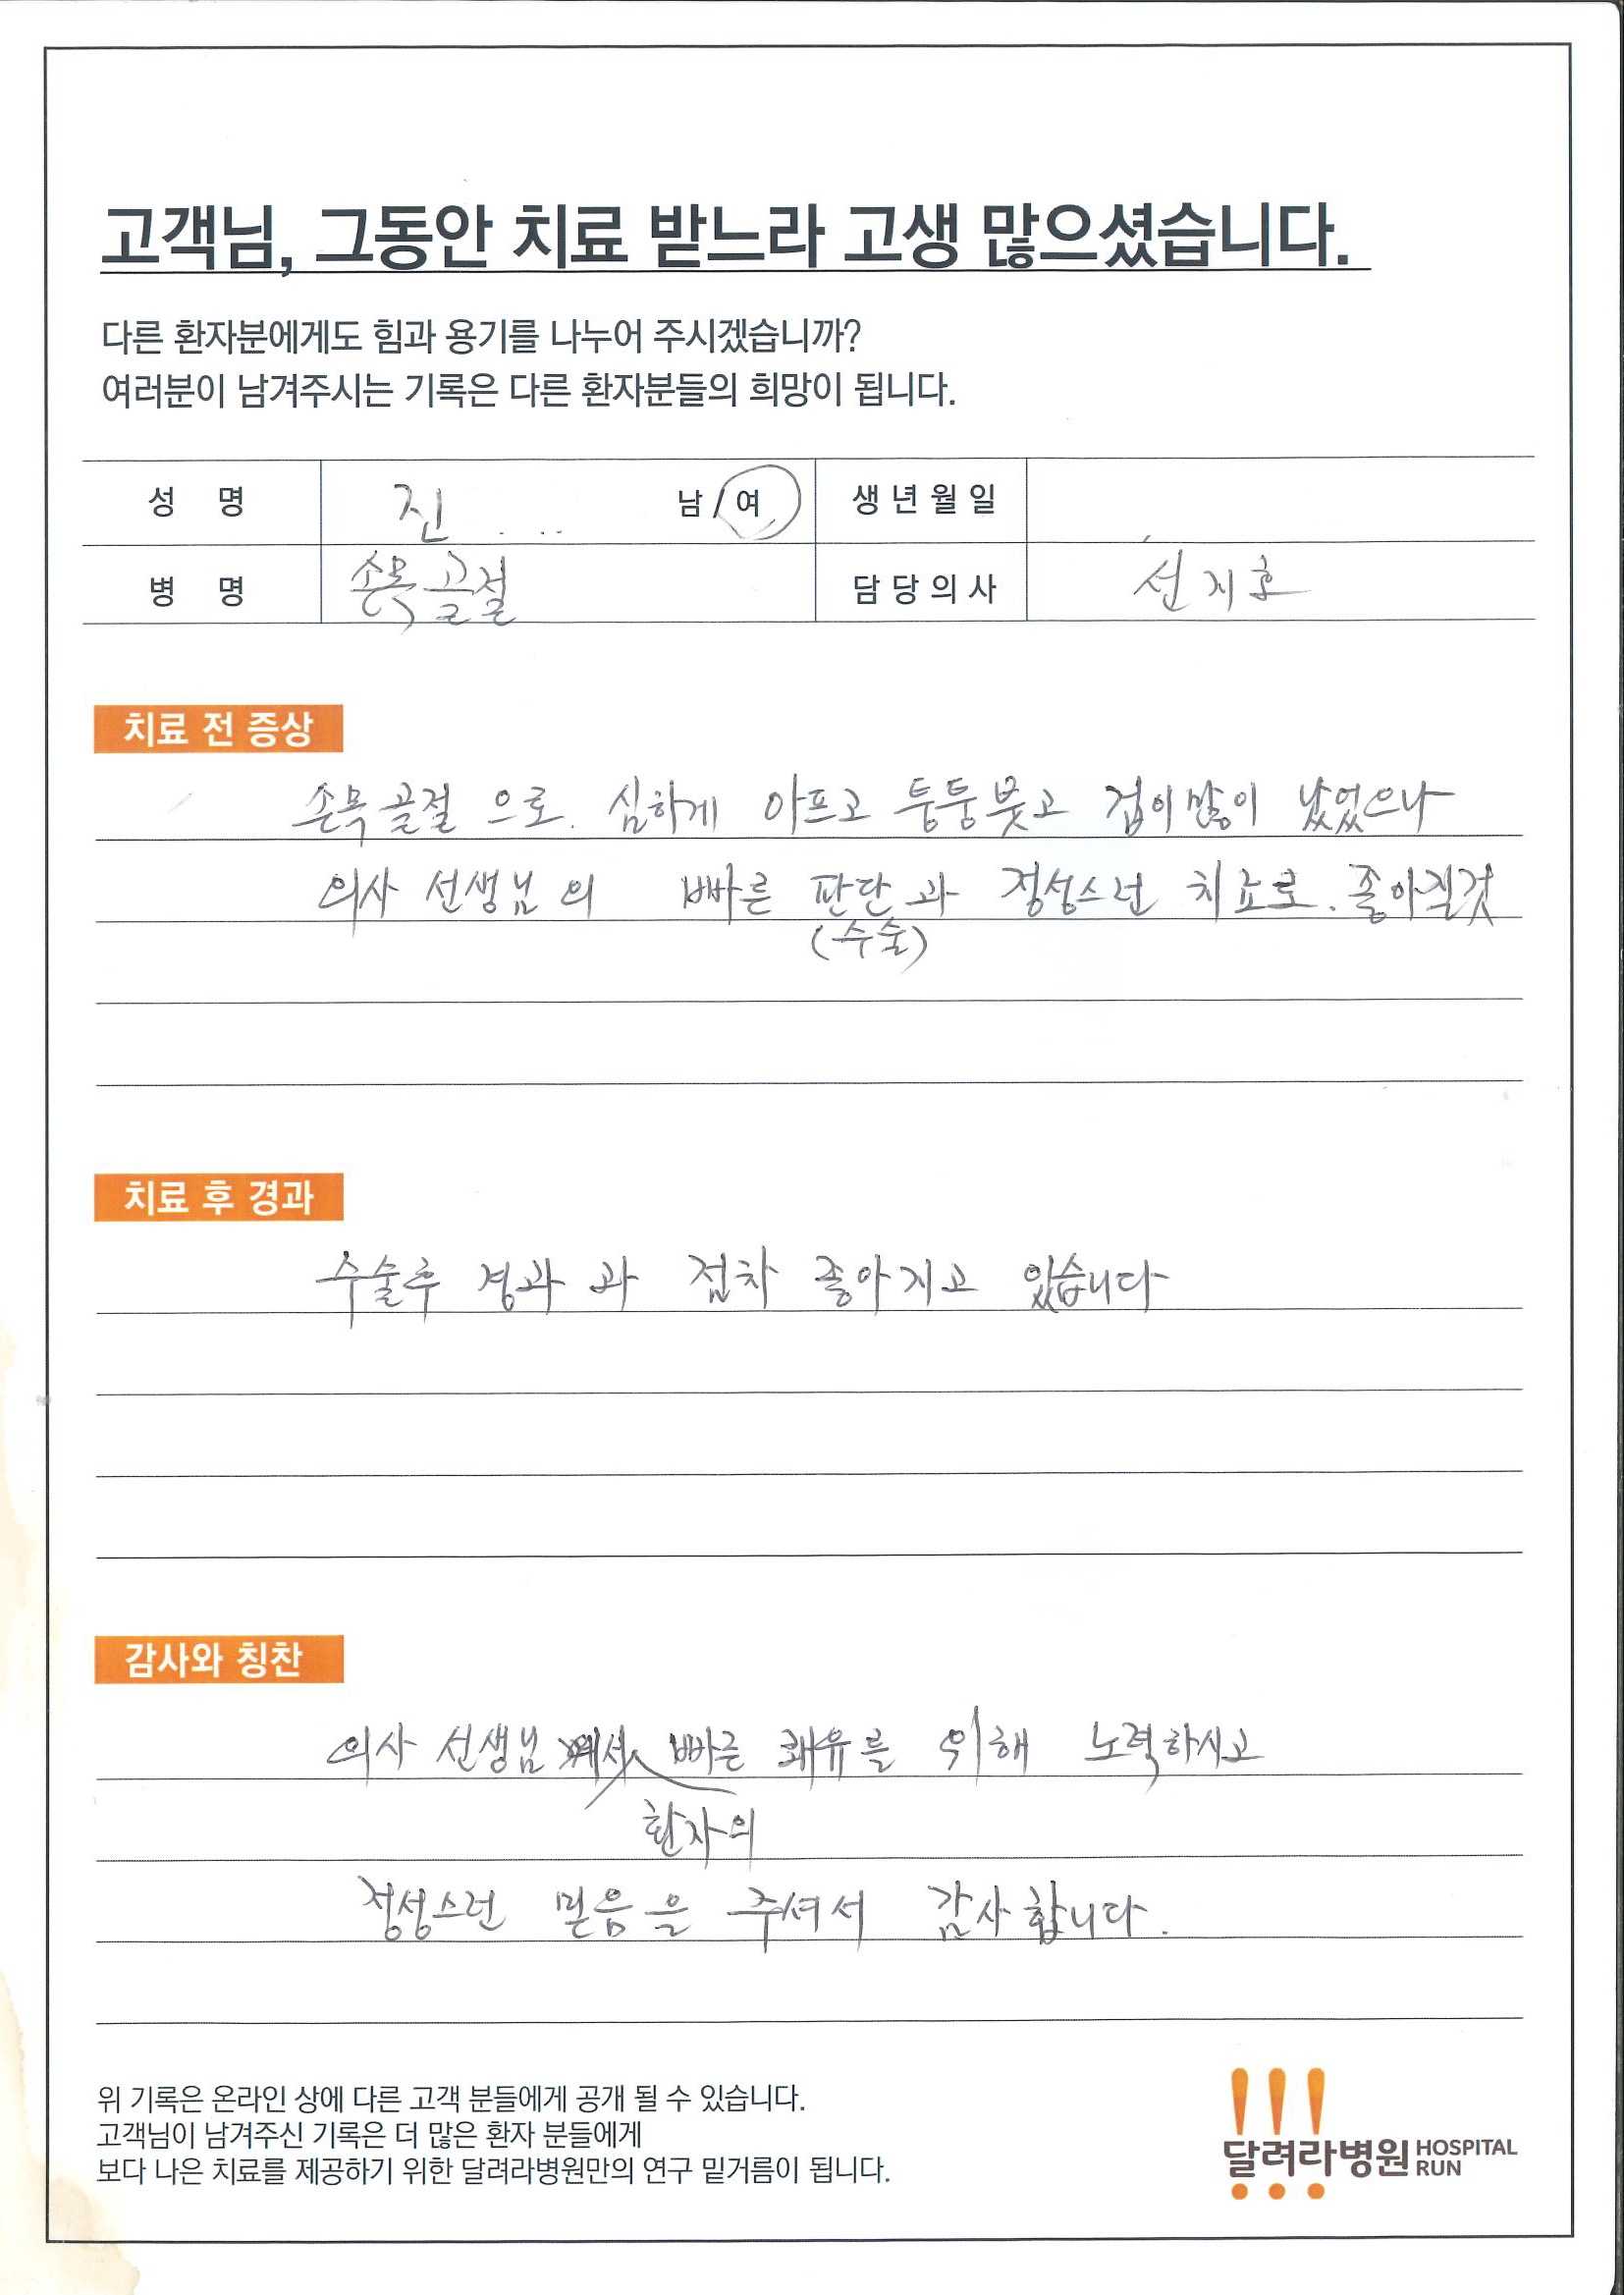 고객님, 그동안 치료 받느라 고생 많으셨습니다.
다른 환자분에게도 힘과 용기를 나누어 주시겠습니까?
여러분이 남겨주시는 기록은 다른 환자분들의 희망이 됩니다.
성 명 진 남 / 여 생년월일
병 명 손목골절 담당의사 선지호
치료 전 증상
손목골절 으로. 심하게 아프고 퉁퉁붓고 겁이많이 났었으나
의사 선생님 의 빠른 판단 과 정성스런 치료로. 좋아질것
(수술)
치료 후 경과
수술후 경과 과 점차 좋아지고 있습니다
감사와 칭찬
의사 선생님 빠른 쾌유를 위해 노력하시고
환자의
정성스런 믿음을 주셔서 감사합니다.
위 기록은 온라인 상에 다른 고객 분들에게 공개 될 수 있습니다.
고객님이 남겨주신 기록은 더 많은 환자 분들에게
보다 나은 치료를 제공하기 위한 달려라병원만의 연구 밑거름이 됩니다.
달려라병원 HOSPITAL
RUN